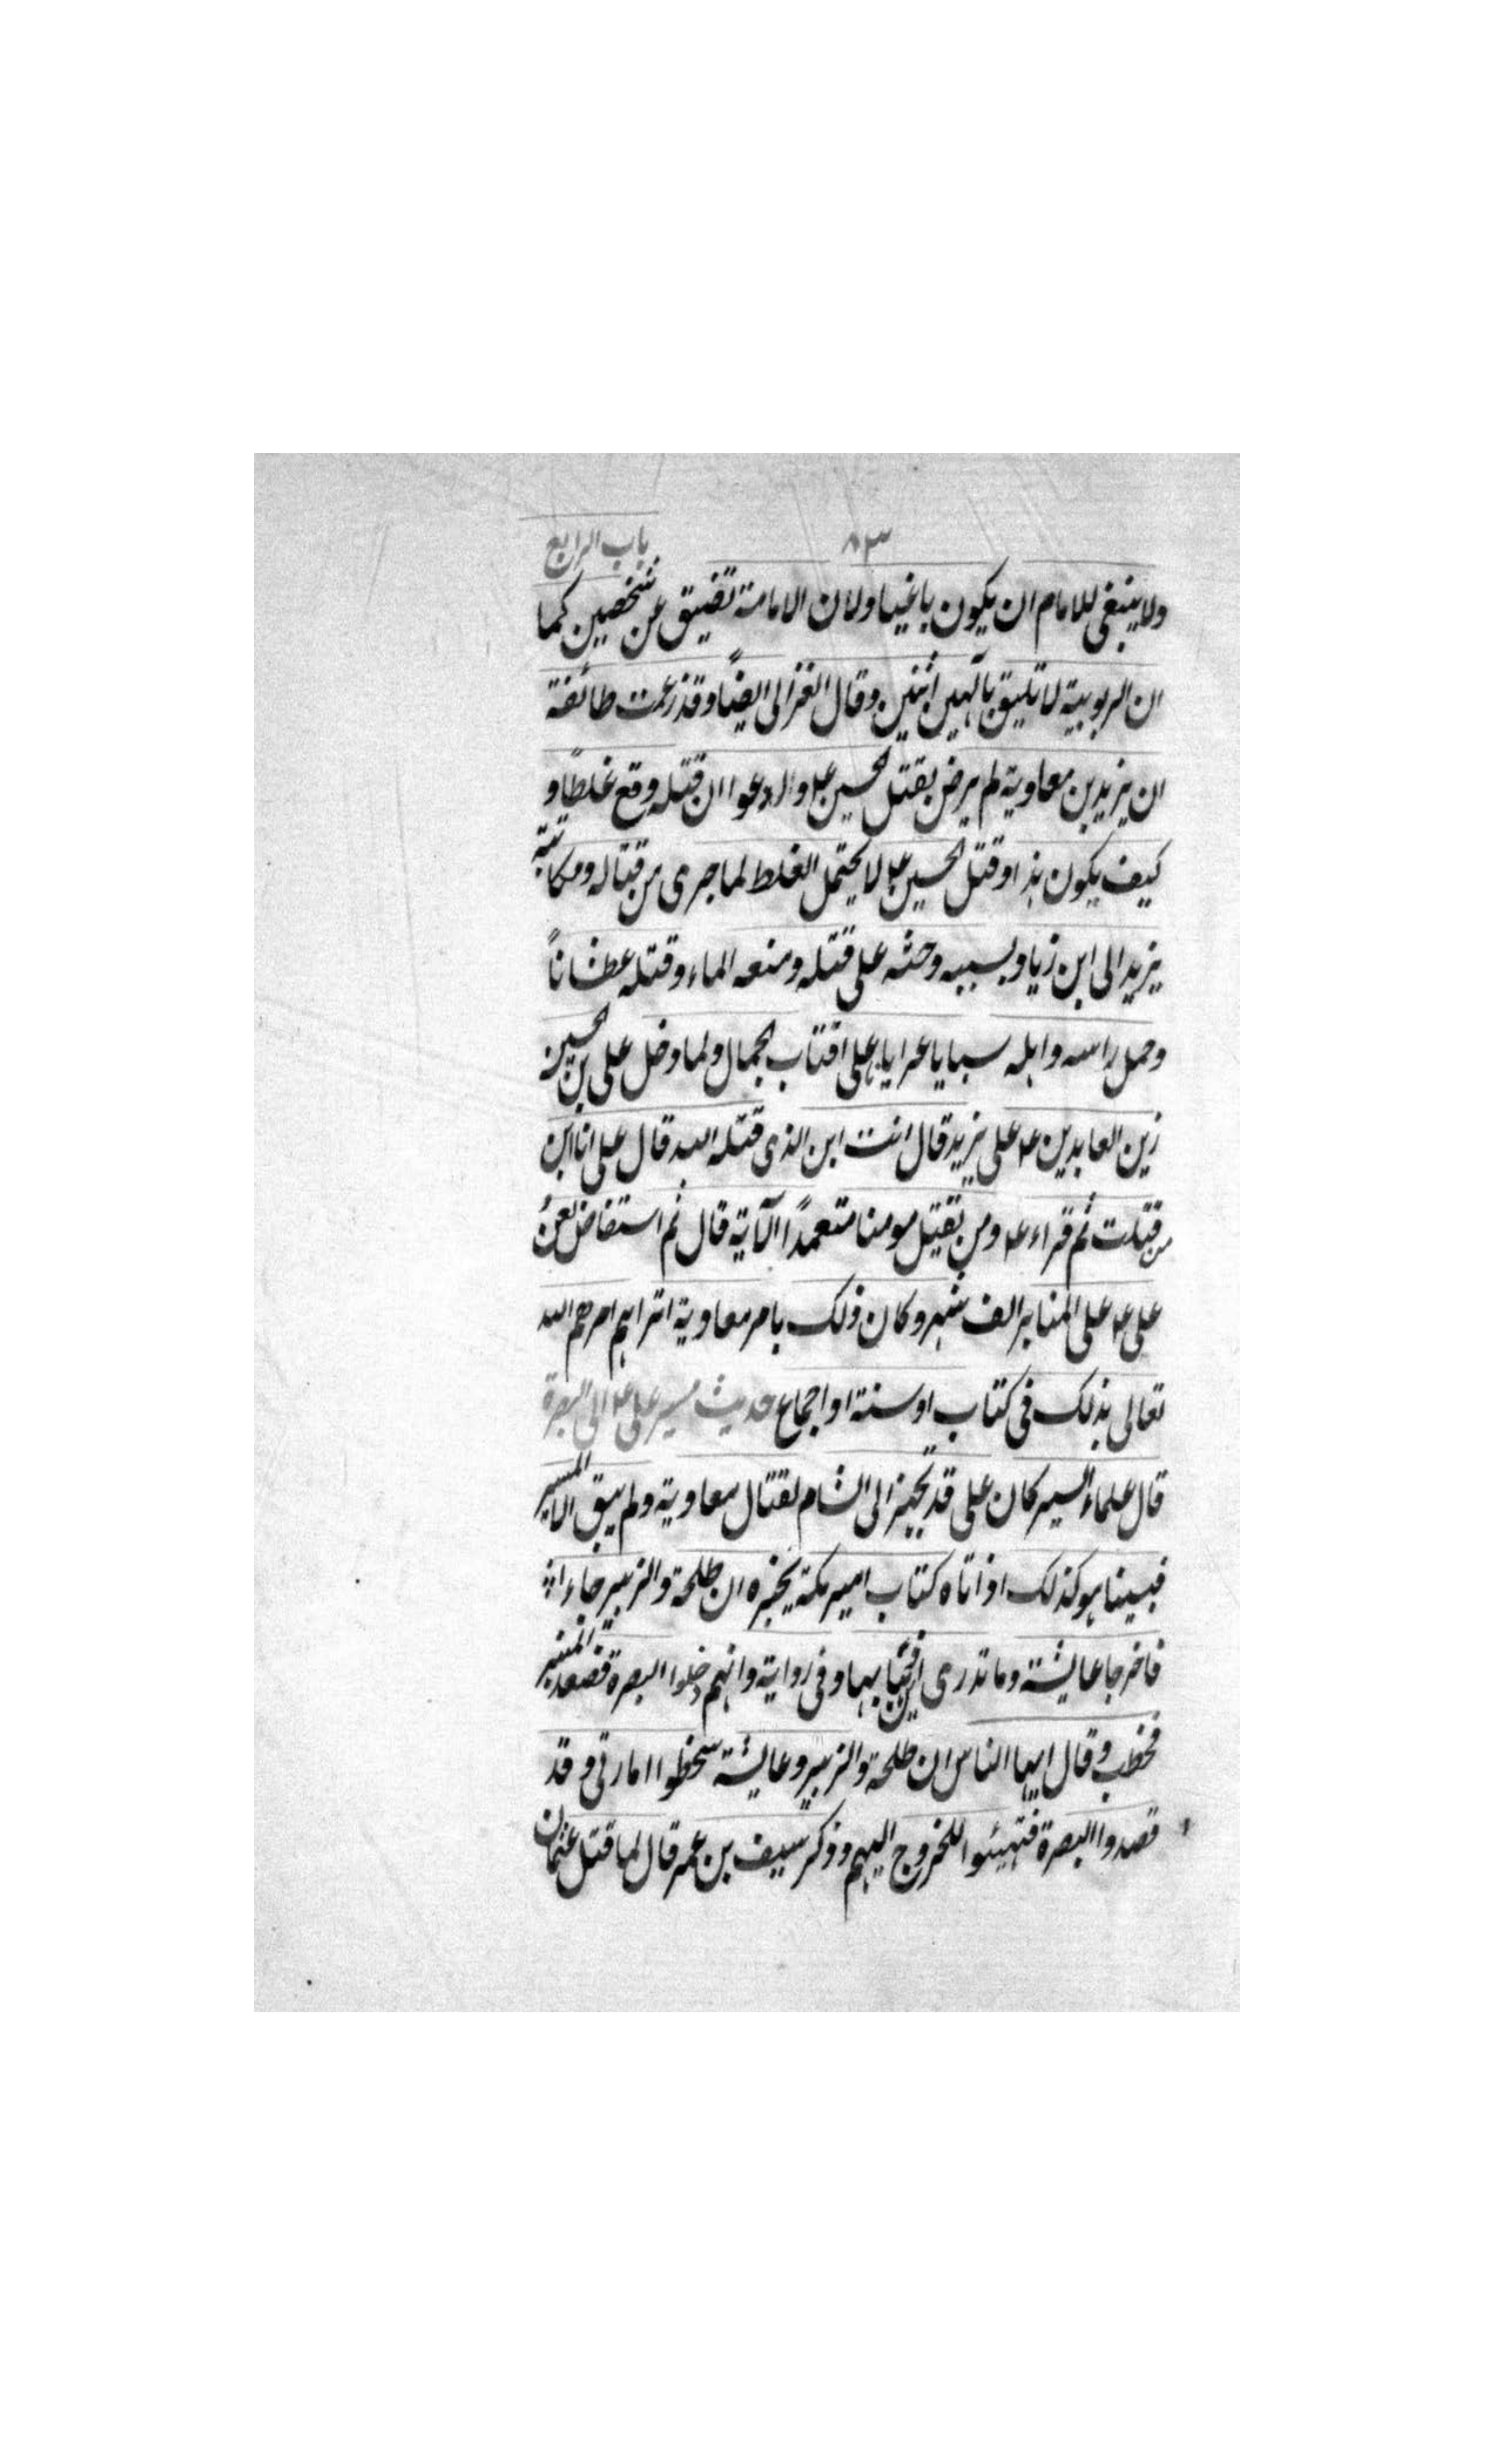 ٨٣ باب الرابع
ولا ينبغى للامام ان يكون باغيا ولان الامامة تضيق عن شخصين كما
ان الربوبية لا تليق بآلهين اثنين وقال الغزالى ايضاً وقد زعمت طائفة
ان يزيد بن معاوية لم يرض بقتل الحسين ع وادعوا ان قتله وقع غلطاً و
كيف يكون هذا وقتل الحسين ع لا يحتمل الغلط لما جرى من قتاله ومكاتبة
يزيد الى ابن زياد بسببه وحثه على قتله ومنعه الماء وقتله عطشاناً
وحمل راسه واهله سبايا عرايا على اقتاب الجمال ولما دخل على بن الحسين
زين العابدين ع على يزيد قال انت ابن الذى قتله الله قال على انا ابن
من قتلت ثم قراء ع ومن يقتل مومنا متعمداً الآية قال ثم استفاض لعنُ
على ع على المنابر الف شهر وكان ذلك بامر معاوية اتراهم امرهم الله
تعالى بذلك فى كتاب او سنة او اجماع حديث مسير على ع الى البصرة
قال علماء السير كان على قد تجهز الى الشام لقتال معاوية ولم يبق الا المسير
فبينا هو كذلك اذ اتاه كتاب امير مكة يخبره ان طلحة والزبير جاءا
فاخرجا عايشة وما تدرى اين ذهبا بها وفى رواية وانهم دخلوا البصرة فصعد المنبر
فخطب وقال ايها الناس ان طلحة والزبير وعايشة سخطوا امارتى وقد
قصدوا البصرة فتهيئوا للخروج اليهم وذكر سيف بن عمر قال لما قتل عثمان